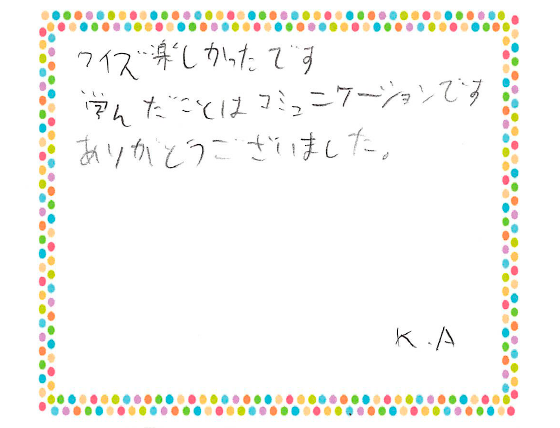 クイズ楽しかったです
学んだことはコミュニケーションです
ありがとうございました。
K.A